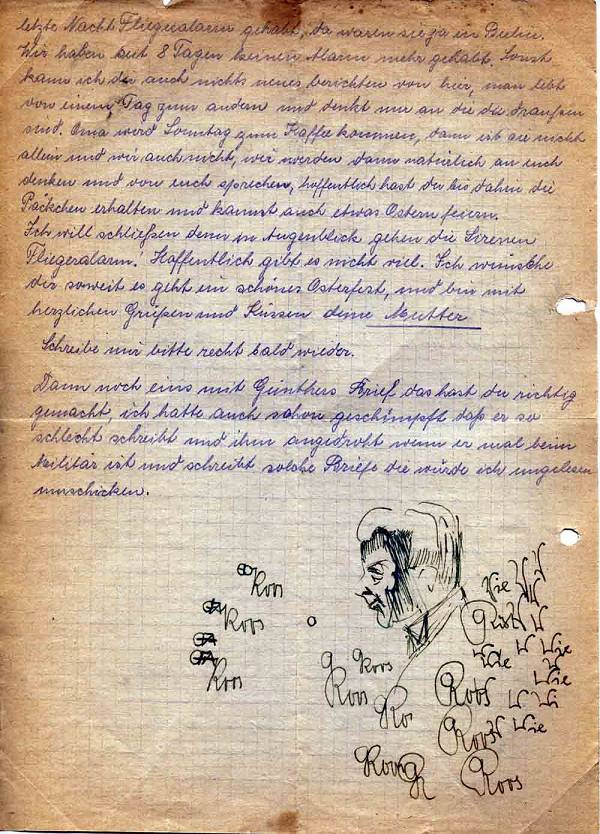 letzte Nacht Fliegeralarm gehabt, da waren sie ja in Berlin.
Wir haben seit 8 Tagen keinen Alarm mehr gehabt. Sonst
kann ich dir auch nichts neues berichten von hier, man lebt
von einem Tag zum andern und denkt nur an die die draußen
sind. Oma wird Sonntag zum Kaffee kommen, dann ist sie nicht
allein und wir auch nicht, wir werden dann natürlich an euch
denken und von euch sprechen, hoffentlich hast du bis dahin die
Päckchen erhalten und kannst auch etwas Ostern feiern.
Ich will schließen denn im Augenblick gehen die Sirenen
Fliegeralarm! Hoffentlich gibt es nicht viel. Ich wünsche
dir soweit es geht ein schönes Osterfest, und bin mit
herzlichen Grüßen und Küssen deine Mutter
Schreibe mir bitte recht bald wieder.
Dann noch eins mit Günthers Brief das hast du richtig
gemacht, ich hatte auch schon geschimpft daß er so
schlecht schreibt und ihm angedroht wenn er mal beim
Militär ist und schreibt solche Briefe die würde ich ungelesen
umschicken.
Roos
Roos
Roos
Roos
Roos
Ro
Roos
Roos
Roos
Wie
Wie
Wie
Wie
Wi
Wie